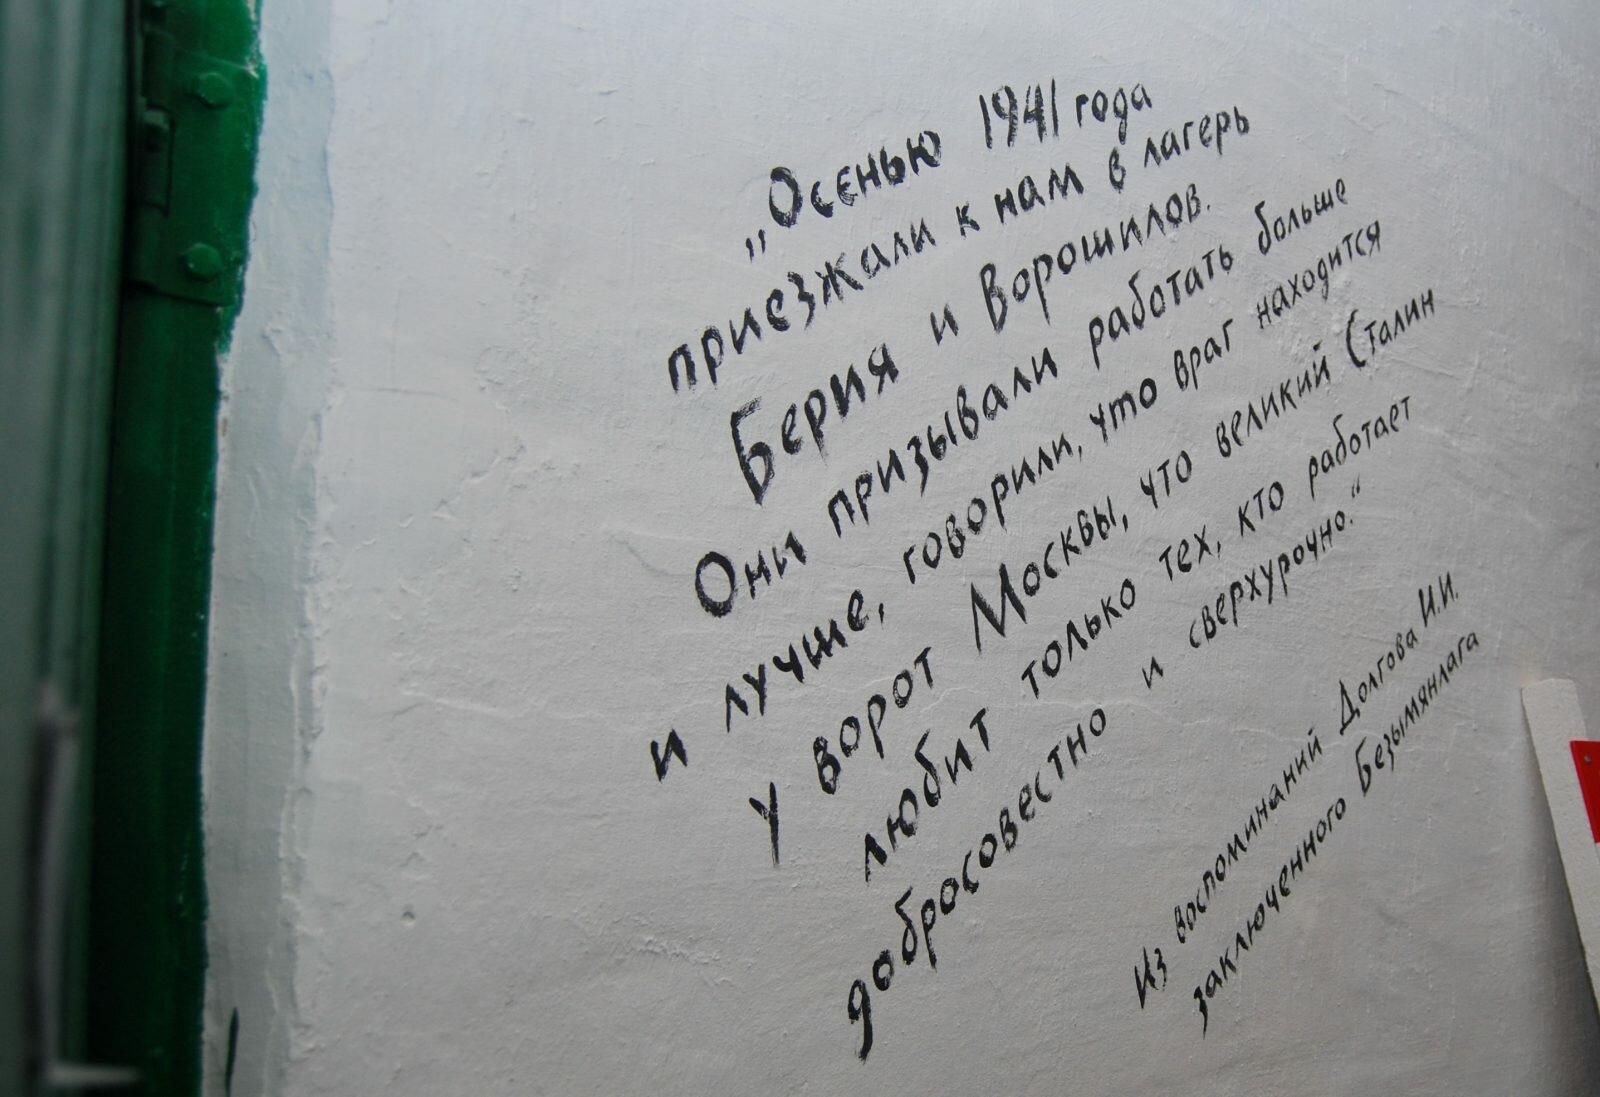 „Осенью 1941 года
приезжали к нам в лагерь
Берия и Ворошилов.
Они призывали работать больше
и лучше, говорили, что враг находится
у ворот Москвы, что великий Сталин
любит только тех, кто работает
добросовестно и сверхурочно.“
Из воспоминаний Долгова И.И.
заключенного Безымянлага